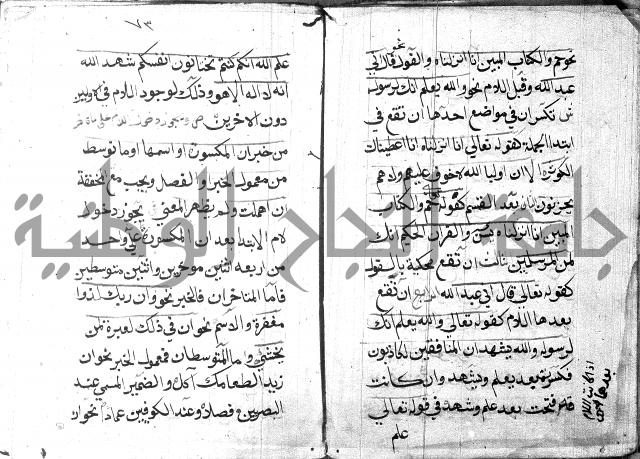 نحو حم والكتاب المبين انا انزلناه والقول قال اني
عبد الله وقبل اللام نحو والله يعلم انك لرسوله
ش تكسران في مواضع احدها ان تقع في
ابتدا الجملة كقوله تعالي انا انزلناه انا اعطيناك
الكوثر الا ان اوليا الله لاخوف عليهم ولا هم
يحزنون بعد القسم كقوله حم والكتاب
المبين انا انزلناه يس والقران الحكيم انك
لمن المرسلين ثالث ان تقع محكية بالقول
كقوله تعالي قال اني عبد الله الرابع ان تقع
بعدها اللام كقوله تعالي والله يعلم انك
لرسوله والله يشهد ان المنافقين لكاذبون
فكسرت بعد يعلم ويشهد وان كانت
قد فتحت بعد علم وشهد في قوله تعالي
علم
اذا كانت اللام
بعدها
٧٣
علم الله انكم كنتم تختانون انفسكم شهد الله
انه لا اله الا هو وذلك لوجود اللام في الاوليين
دون الاخريين ص ويجوز دخول اللام علي ما تاخر
من خبر ان المكسورة او اسمها او ما توسط
من معمول الخبر او الفصل ويجب مع المخففة
ان اهملت ولم يظهر المعني ش يجوز دخول
لام الابتدا بعد ان المكسورة علي واحد
من اربعة اثنين موخرين واثنين متوسطين
فاما المتاخران فالخبر نحو وان ربك لذوا
مغفرة والاسم نحو ان في ذلك لعبرة لمن
يخشي واما المتوسطان فمعمول الخبر نحو ان
زيدا لطعامك آكل والضمير المسمي عند
البصريين فصلا وعند الكوفيين عمادا نحو ان
جامعة النجاح الوطنية